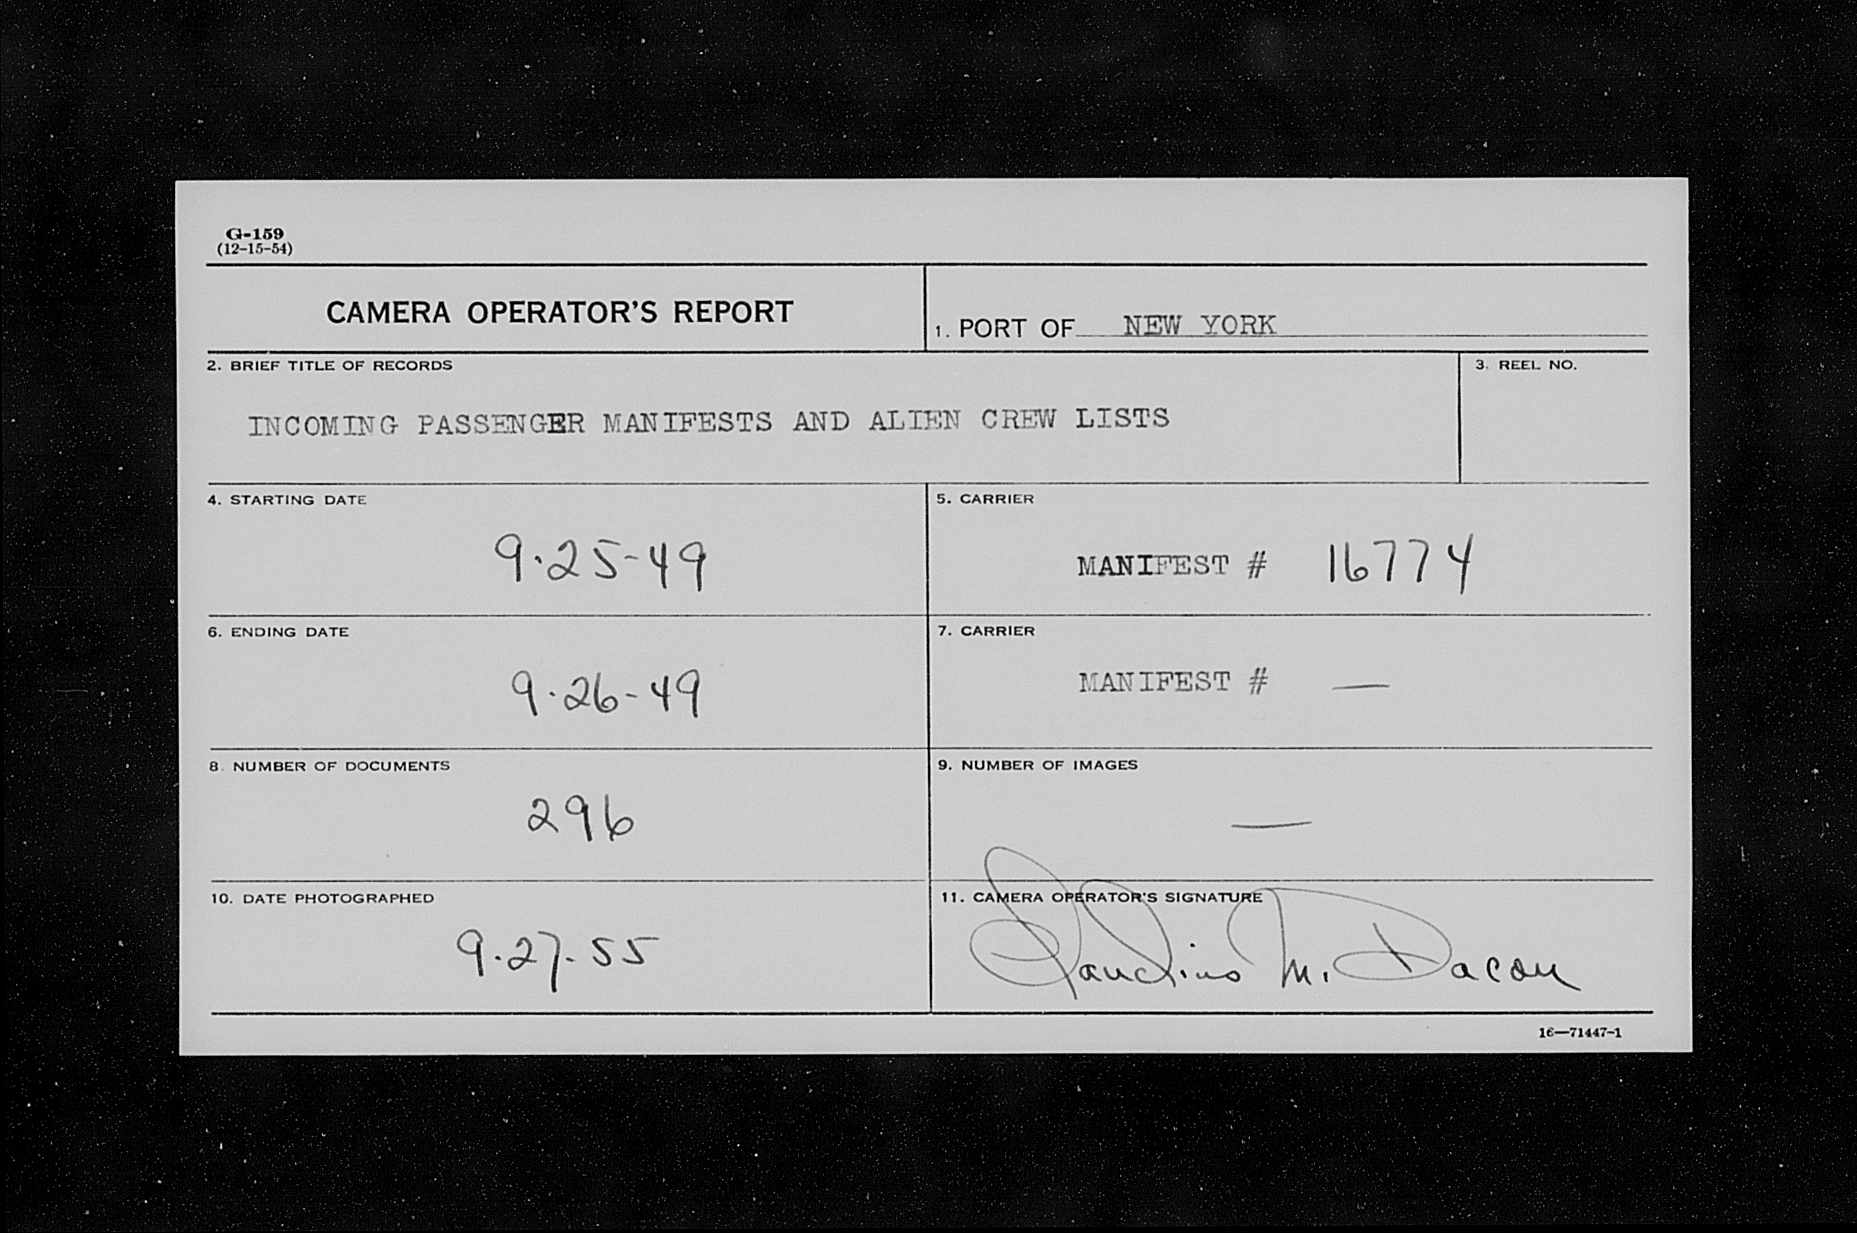 G-159
(12-15-54)
CAMERA OPERATOR'S REPORT
1. PORT OF NEW YORK
2. BRIEF TITLE OF RECORDS
3. REEL NO.
INCOMING PASSENGER MANIFESTS AND ALIEN CREW LISTS
4. STARTING DATE
9·25-49
5. CARRIER
MANIFEST # 16774
6. ENDING DATE
9·26-49
7. CARRIER
MANIFEST # —
8. NUMBER OF DOCUMENTS
296
9. NUMBER OF IMAGES
—
10. DATE PHOTOGRAPHED
9.27.55
11. CAMERA OPERATOR'S SIGNATURE
Claudino M. Dacou
16—71447-1